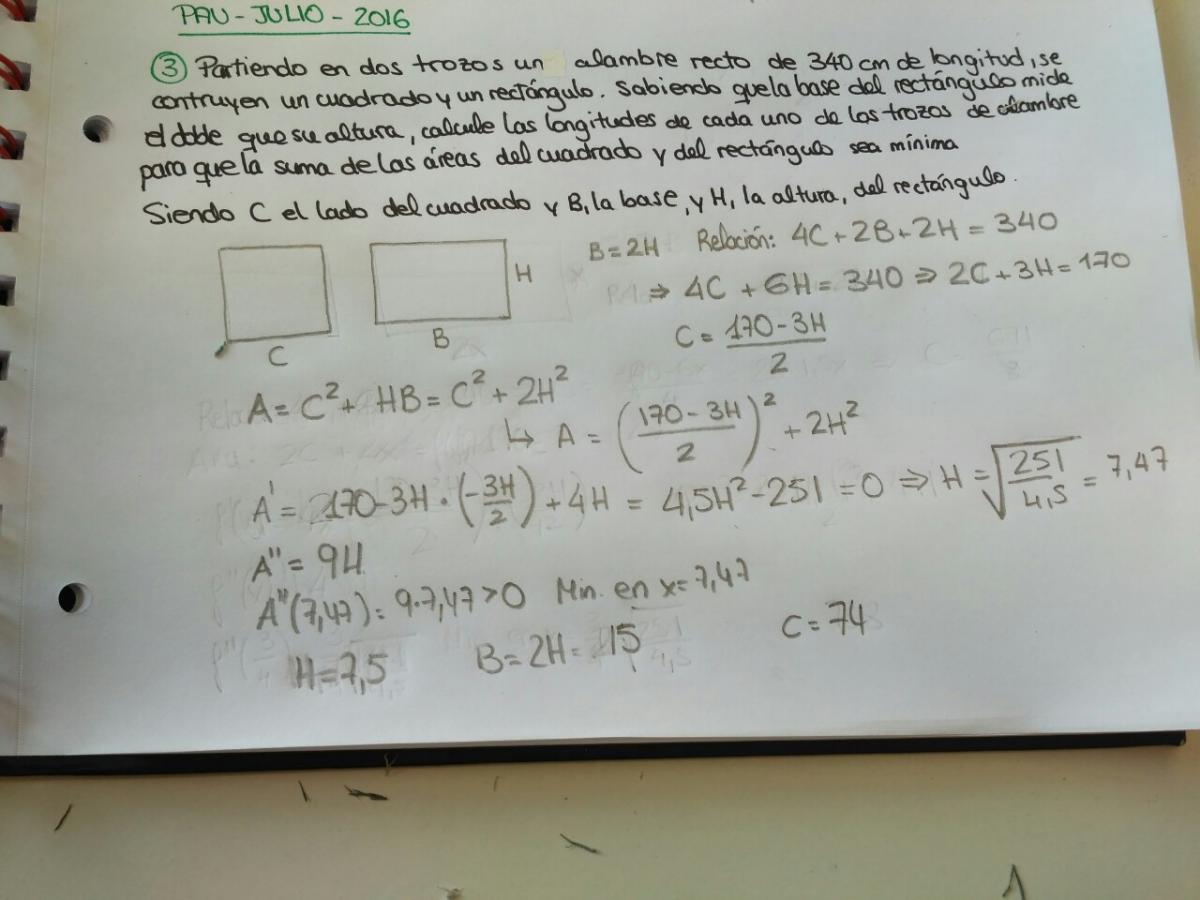 PAU - JULIO - 2016
③ Partiendo en dos trozos un alambre recto de 340 cm de longitud, se
contruyen un cuadrado y un rectángulo. Sabiendo que la base del rectángulo mide
el doble que su altura, calcule las longitudes de cada uno de los trozos de alambre
para que la suma de las áreas del cuadrado y del rectángulo sea mínima
Siendo C el lado del cuadrado y B, la base, y H, la altura, del rectángulo.
B = 2H Relación: 4C + 2B + 2H = 340
H
⇒ 4C + 6H = 340 ⇒ 2C + 3H = 170
C B
C = (170 - 3H)/2
A = C² + HB = C² + 2H²
↳ A = ((170 - 3H)/2)² + 2H²
A' = 170 - 3H · (-3H/2) + 4H = 4,5H² - 251 = 0 ⇒ H = √(251/4,5) = 7,47
A'' = 9H
A''(7,47) = 9·7,47 > 0 Min. en x = 7,47
H = 7,5 B = 2H = 15 C = 74